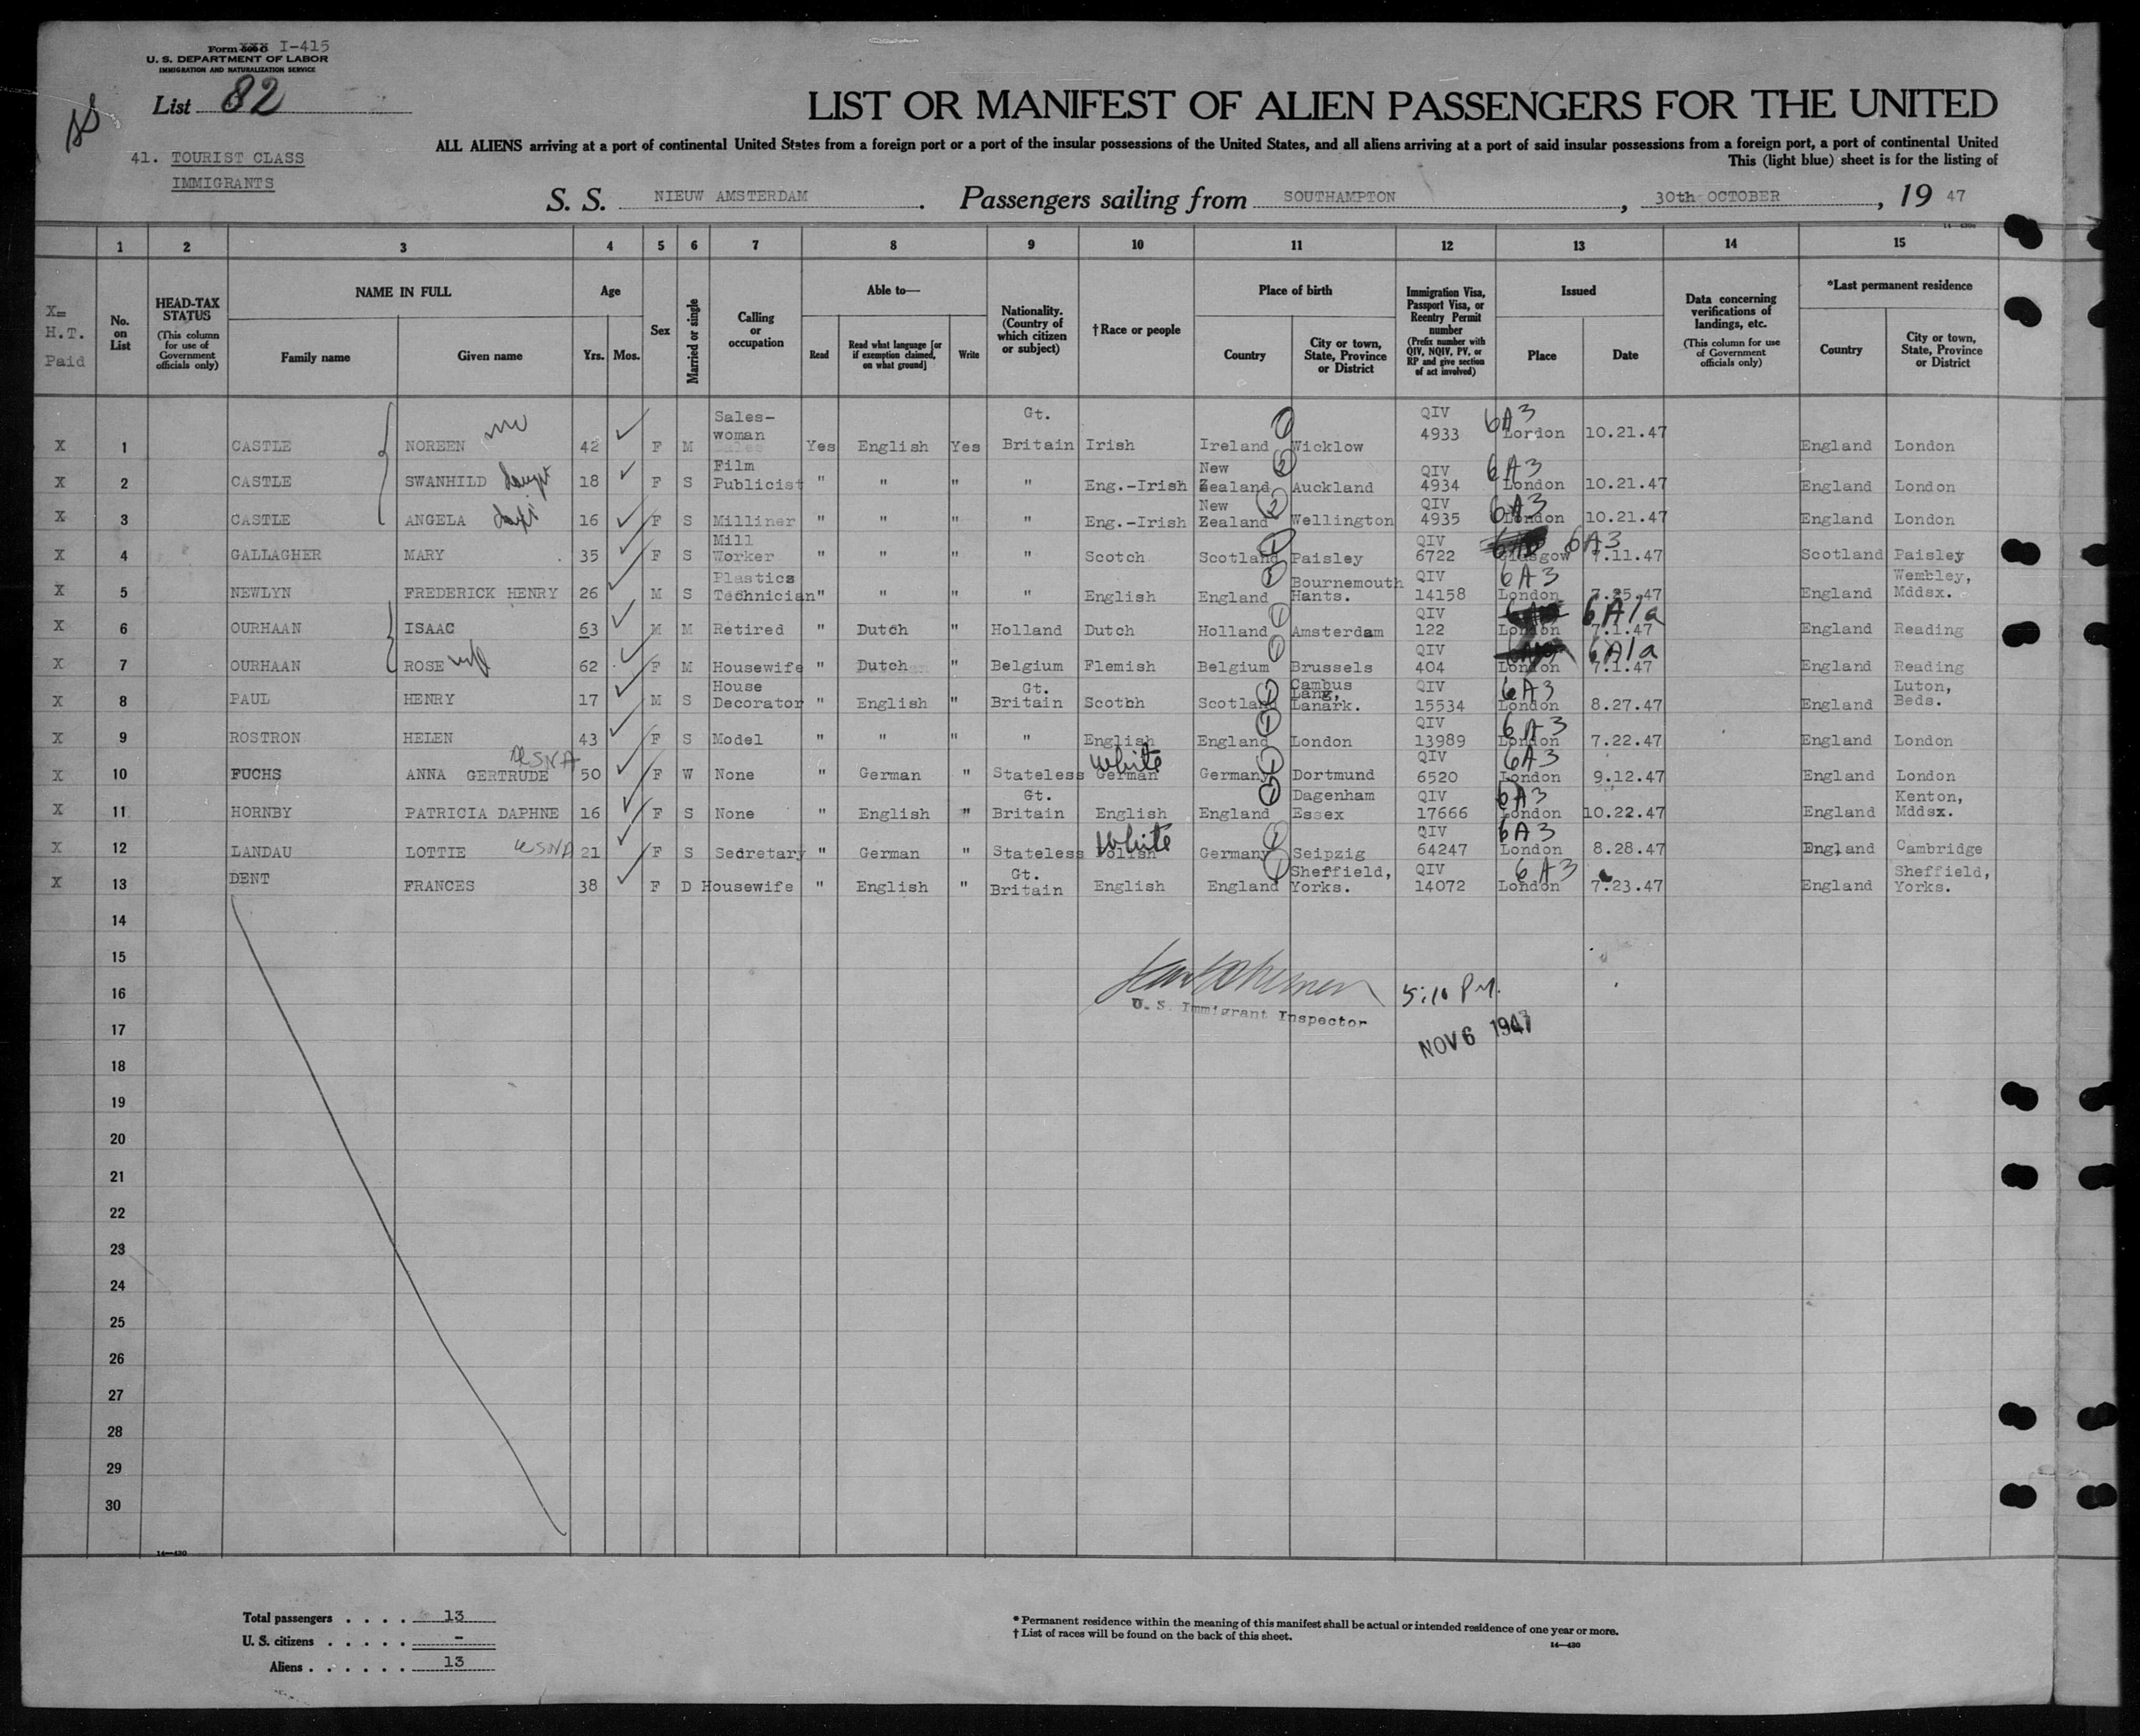 Form XXX I-415
U. S. DEPARTMENT OF LABOR
IMMIGRATION AND NATURALIZATION SERVICE
List 82
LIST OR MANIFEST OF ALIEN PASSENGERS FOR THE UNITED
ALL ALIENS arriving at a port of continental United States from a foreign port or a port of the insular possessions of the United States, and all aliens arriving at a port of said insular possessions from a foreign port, a port of continental United
This (light blue) sheet is for the listing of
41. TOURIST CLASS
IMMIGRANTS
S. S. NIEUW AMSTERDAM. Passengers sailing from SOUTHAMPTON, 30th OCTOBER, 19 47
1 2 3 4 5 6 7 8 9 10 11 12 13 14 15
X= H.T. Paid
No. on List
HEAD-TAX STATUS (This column for use of Government officials only)
NAME IN FULL Family name Given name
Age Yrs. Mos.
Sex
Married or single
Calling or occupation
Able to— Read Read what language [or if exemption claimed, on what ground] Write
Nationality. (Country of which citizen or subject)
†Race or people
Place of birth Country City or town, State, Province or District
Immigration Visa, Passport Visa, or Reentry Permit number (Prefix number with QIV, NQIV, PV, or RP and give section of act involved)
Issued Place Date
Data concerning verifications of landings, etc. (This column for use of Government officials only)
*Last permanent residence Country City or town, State, Province or District
X 1 CASTLE NOREEN 42 F M Sales-woman Yes English Yes Gt. Britain Irish Ireland 1 Wicklow QIV 4933 6A3 London 10.21.47 England London
X 2 CASTLE SWANHILD 18 F S Film Publicist " " " " Eng.-Irish New Zealand 2 Auckland QIV 4934 6A3 London 10.21.47 England London
X 3 CASTLE ANGELA 16 F S Milliner " " " " Eng.-Irish New Zealand 2 Wellington QIV 4935 6A3 London 10.21.47 England London
X 4 GALLAGHER MARY 35 F S Mill Worker " " " " Scotch Scotland 1 Paisley QIV 6722 6A3 Glasgow 7.11.47 Scotland Paisley
X 5 NEWLYN FREDERICK HENRY 26 M S Plastics Technician " " " " English England 1 Bournemouth Hants. QIV 14158 6A3 London 7.25.47 England Wembley, Mddsx.
X 6 OURHAAN ISAAC 63 M M Retired " Dutch " Holland Dutch Holland 1 Amsterdam QIV 122 6A1a London 7.1.47 England Reading
X 7 OURHAAN ROSE wife 62 F M Housewife " Dutch " Belgium Flemish Belgium 1 Brussels QIV 404 6A1a London 7.1.47 England Reading
X 8 PAUL HENRY 17 M S House Decorator " English " Gt. Britain Scotbh Scotland 1 Cambus Lang, Lanark. QIV 15534 6A3 London 8.27.47 England Luton, Beds.
X 9 ROSTRON HELEN 43 F S Model " " " " English England 1 London QIV 13989 6A3 London 7.22.47 England London
X 10 FUCHS ANNA GERTRUDE 50 F W None " German " Stateless German White Germany 1 Dortmund QIV 6520 6A3 London 9.12.47 England London
X 11 HORNBY PATRICIA DAPHNE 16 F S None " English " Gt. Britain English England 1 Dagenham Essex QIV 17666 6A3 London 10.22.47 England Kenton, Mddsx.
X 12 LANDAU LOTTIE 21 F S Sedretary " German " Stateless Polish White Germany 1 Seipzig QIV 64247 6A3 London 8.28.47 England Cambridge
X 13 DENT FRANCES 38 F D Housewife " English " Gt. Britain English England 1 Sheffield, Yorks. QIV 14072 6A3 London 7.23.47 England Sheffield, Yorks.
14
15
16 5:10 PM.
U. S. Immigrant Inspector
17 NOV 6 1947
18
19
20
21
22
23
24
25
26
27
28
29
30
14—430
Total passengers . . . . 13
U. S. citizens . . . . . -
Aliens . . . . . . 13
* Permanent residence within the meaning of this manifest shall be actual or intended residence of one year or more.
† List of races will be found on the back of this sheet.
14—430